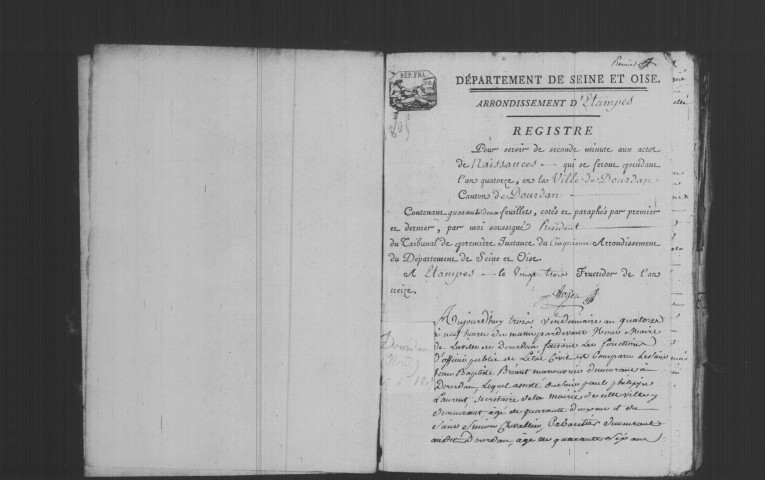 Premier
RÉP. FRA.
DÉPARTEMENT DE SEINE ET OISE.
ARRONDISSEMENT D'Etampes
REGISTRE
Pour servir de seconde minute aux actes
de Naissances qui se feront pendant
l'an quatorze, en la Ville de Dourdan
Canton de Dourdan
Contenant quarante deux feuillets, cotés et paraphés par premier
et dernier, par moi soussigné Président
du Tribunal de première Instance du Cinquième Arrondissement
du Département de Seine et Oise.
A Etampes le Vingt trois Fructidor de l'an
treize.
Aujourd'huy trois vendemiaire an quatorze
à neuf heures du matin pardevant Nous Maire
de la ville de Dourdan faisant les fonctions
d'officier public de l'état Civil est Comparu le Sieur
Jean Baptiste Briant manouvrier demeurant à
Dourdan, lequel assisté du Sieur paul philippe
Laurent, Secrétaire de la mairie de cette ville y
demeurant âgé de quarante ans et du
Sieur Simeon Chevallier, Cabaretier demeurant
audit Dourdan, âgé de quarante Six ans
Dourdan